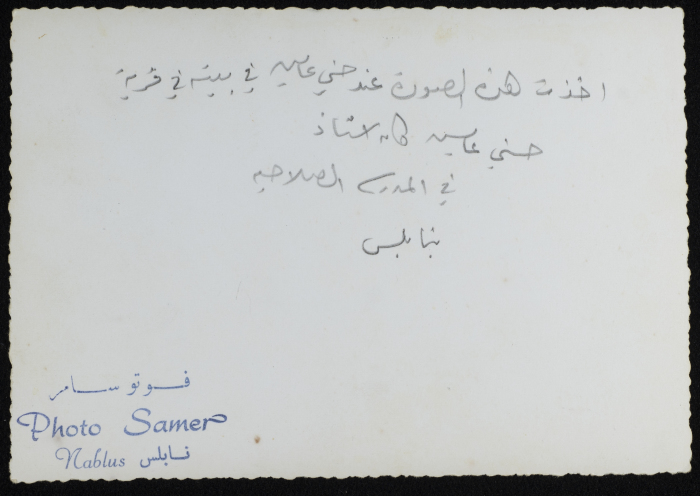 اخذت هذه الصورة عند حسني عايش في بيته في قرية
حسني عايش كان استاذ
في المدرسه الصلاحيه
بنابلس
فوتو سامر
Photo Samer
Nablus نابلس